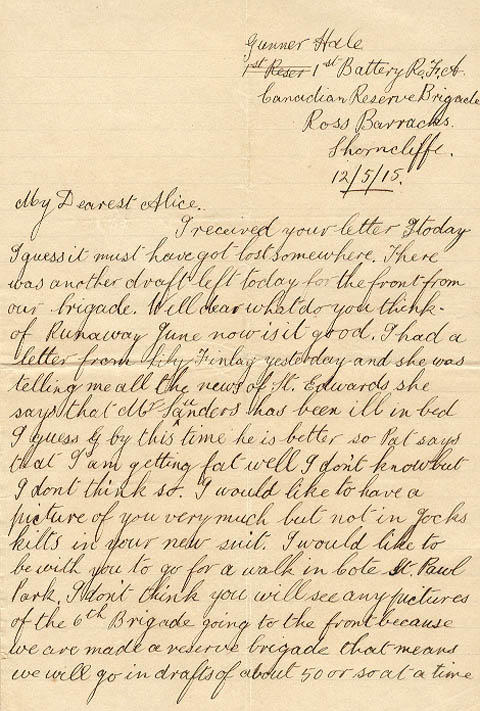 Gunner Hale
1st Reser 1st Battery R.F.A.
Canadian Reserve Brigade
Ross Barracks.
Shorncliffe.
12/5/15.
My Dearest Alice.
I received your letter today
I guess it must have got lost somewhere. There
was another draft left today for the front from
our brigade. Well dear what do you think
of Runaway June now is it good. I had a
letter from Lily Finlay yesterday and she was
telling me all the news of St. Edwards she
says that Mr Saunders has been ill in bed
I guess by this time he is better so Pat says
that I am getting fat well I don't know but
I dont think so. I would like to have a
picture of you very much but not in Jocks
kilts in your new suit. I would like to
be with you to go for a walk in Cote St. Paul
Park. I don't think you will see any pictures
of the 6th Brigade going to the front because
we are made a reserve brigade that means
we will go in drafts of about 50 or so at a time